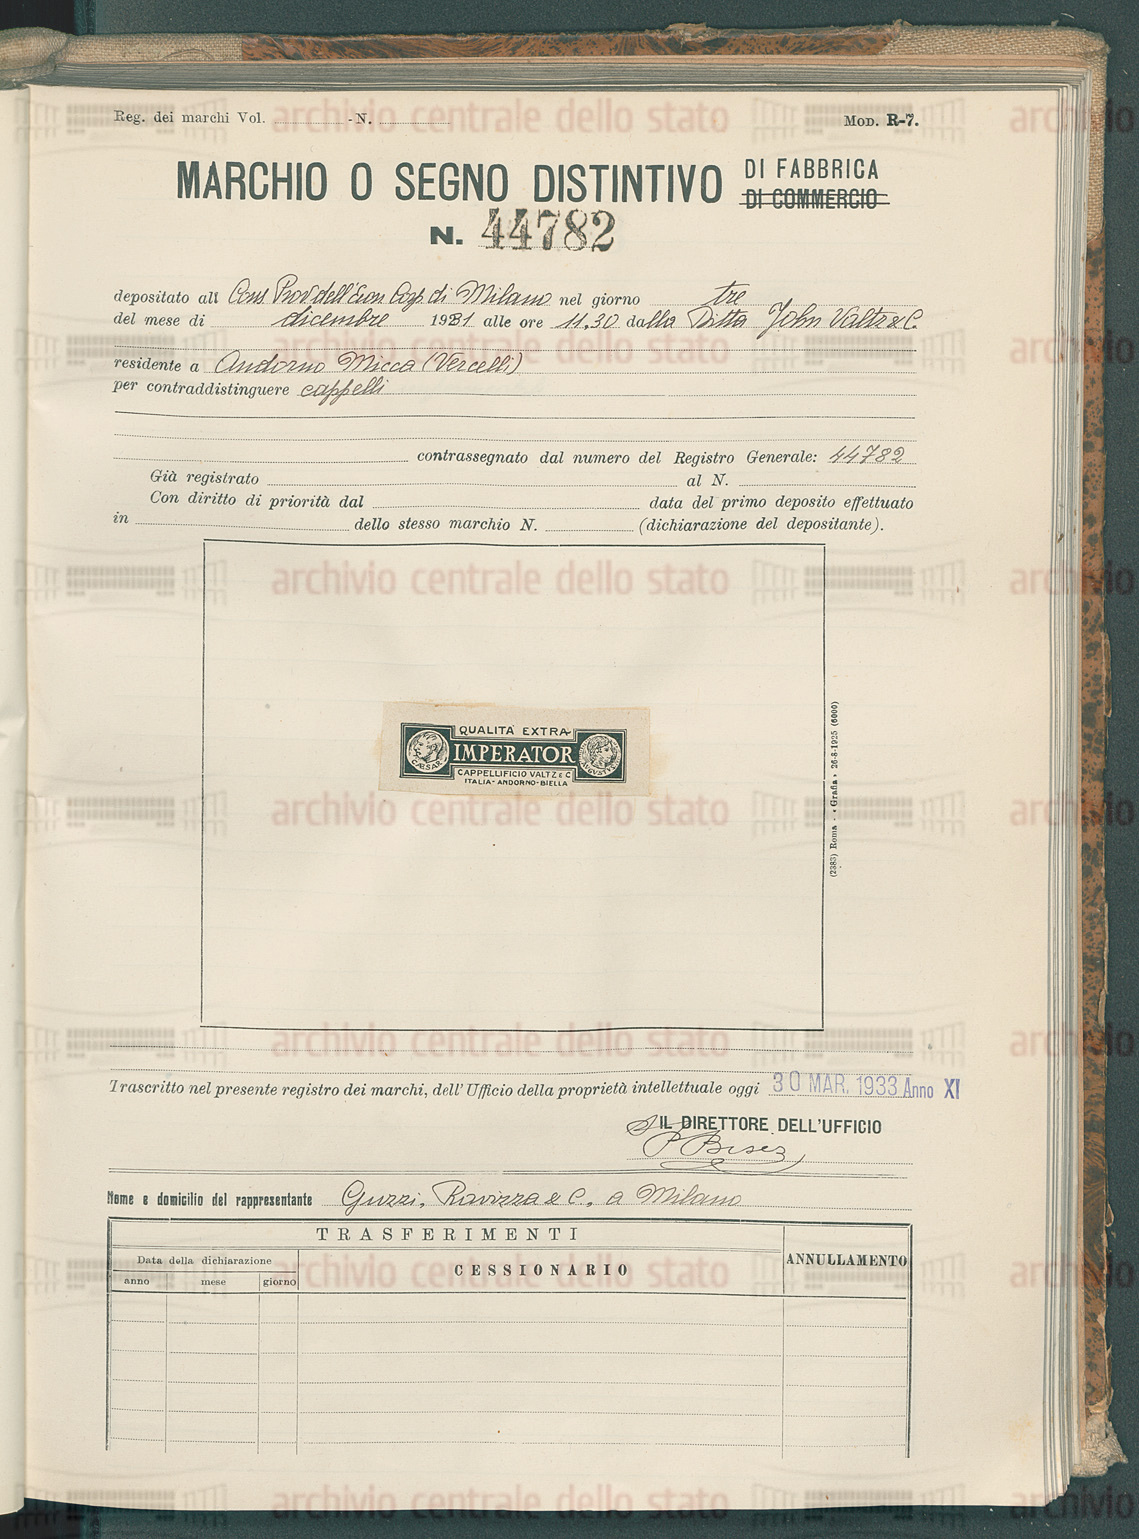 Reg. dei marchi Vol. - N.
MOD. R-7.
MARCHIO O SEGNO DISTINTIVO DI FABBRICA
DI COMMERCIO
N. 44782
depositato all Cons Prov dell'Econ Corp. di Milano nel giorno tre
del mese di dicembre 1931 alle ore 11.30 dalla Ditta John Valtz & C.
residente a Andorno Micca (Vercelli)
per contraddistinguere cappelli
contrassegnato dal numero del Registro Generale: 44782
Già registrato al N.
Con diritto di priorità dal data del primo deposito effettuato
in dello stesso marchio N. (dichiarazione del depositante).
QUALITÀ EXTRA
CÆSAR IMPERATOR AVGVSTVS
CAPPELLIFICIO VALTZ & C
ITALIA - ANDORNO - BIELLA
(2383) Roma - « Grafia » 26-8-1925 (6000)
Trascritto nel presente registro dei marchi, dell'Ufficio della proprietà intellettuale oggi 30 MAR. 1933 Anno XI
IL DIRETTORE DELL'UFFICIO
Nome e domicilio del rappresentante Guzzi, Ravizza & C. a Milano
TRASFERIMENTI
Data della dichiarazione
CESSIONARIO
ANNULLAMENTO
anno mese giorno
archivio centrale dello stato